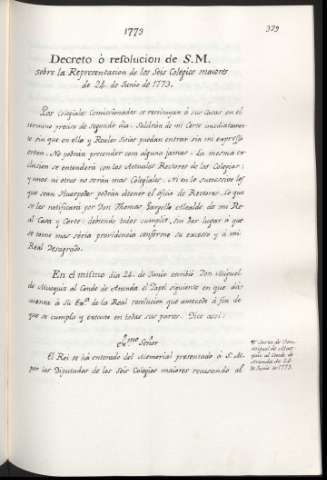 1773
329
Decreto ò resolucion de S.M.
sobre la Representacion de los Seis Colegios maiores
de 24. de Junio de 1773.
Los Colegiales Comisionados se restituyan à sus Casas en el
término preciso de segundo dia. Saldrán de mi Corte inmediatamente
sin que en ella y Reales Sitios puedan entrar sin mi expreso
orden. No podrán pretender cosa alguna jamas. La misma
se entenderá con los actuales Rectores de los Colegios;
y unos ni otros no serán mas Colegiales. Ni en lo sucesivo los
que sean Huespedes podrán obtener el oficio de Rectores. Lo que
se les notificará por Don Thomas Alcalde de mi Real
Casa y Corte: debiendo todos cumplir, sin dar lugar à que
se tome mas séria providencia conforme su exceso y à mi
Real Desagrado.
En el mismo dia 24. de Junio escribió Don Miguel
de Muzquiz al Conde de Aranda el Papel siguiente en que
à Su Exa. de la Real resolucion que antecede à fin de
que se cumpla y execute en todas sus partes. Dice asi:
Exmo Señor
El Rei se ha enterado del Memorial presentado à S.M.
por los Diputados de los Seis Colegios maiores recusando al
Carta de Don
Miguel de Muzquiz
al Conde de
Aranda de 24
de Junio de 1773.